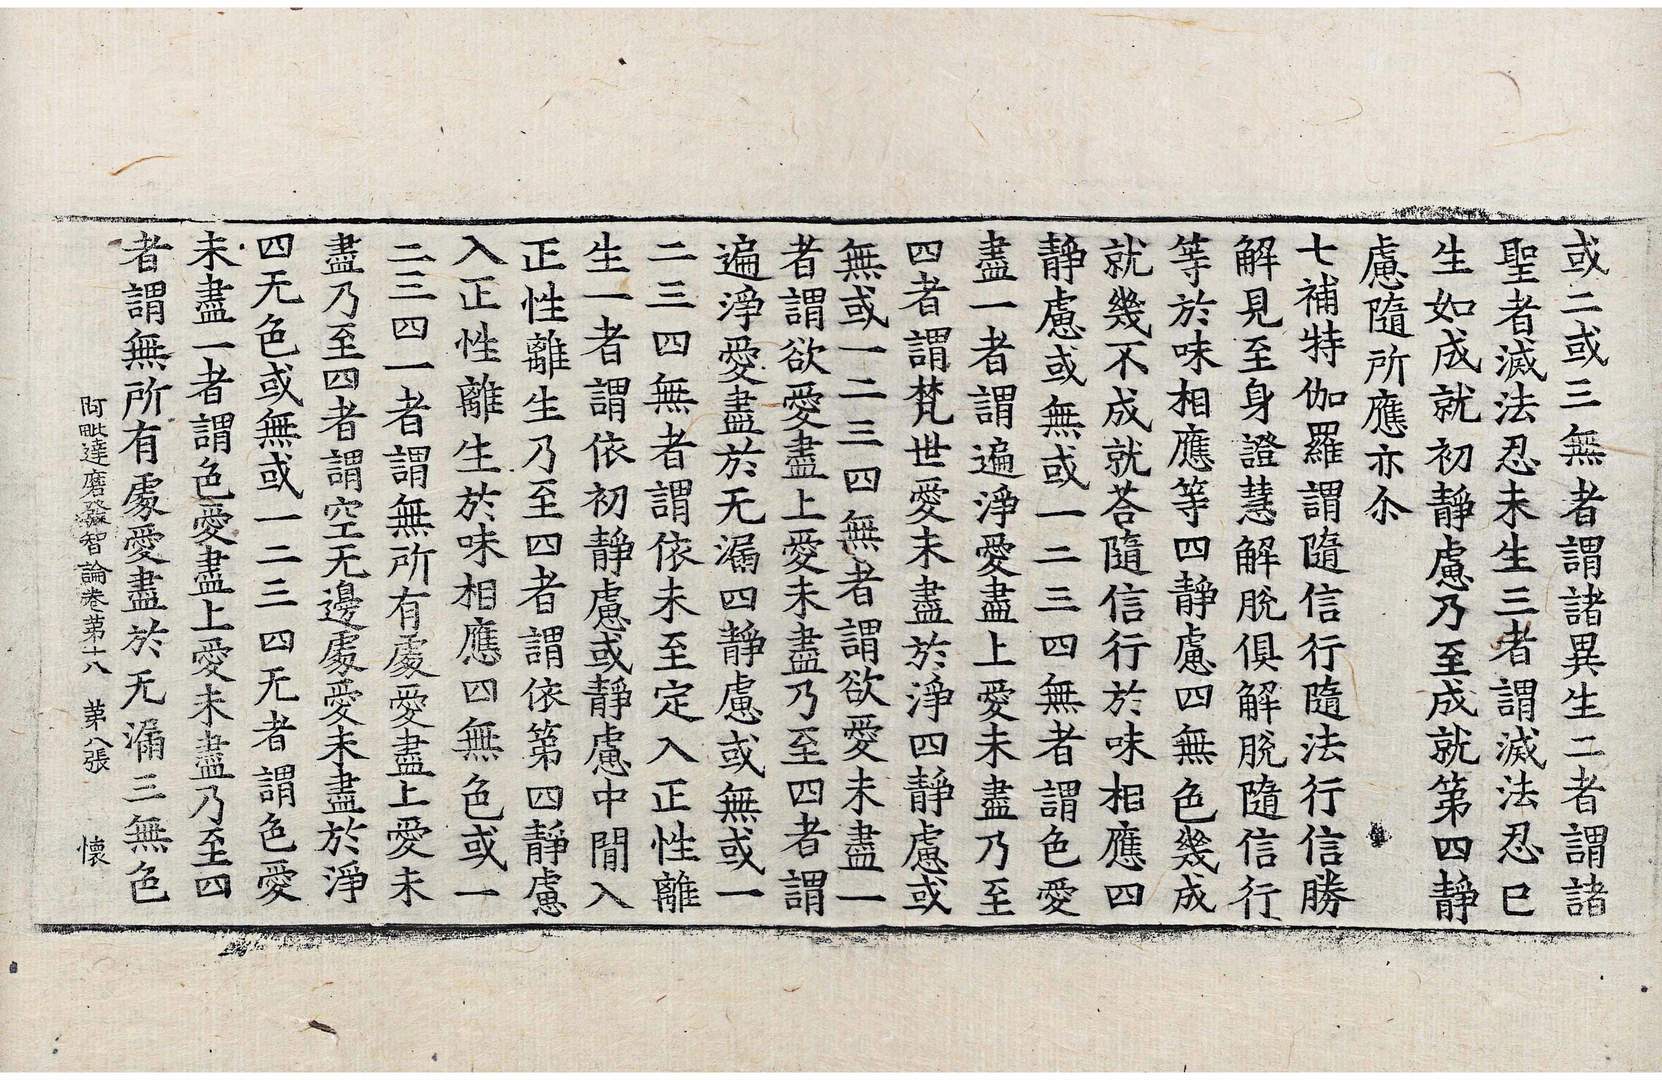 或二或三無者謂諸異生二者謂諸
聖者滅法忍未生三者謂滅法忍已
生如成就初靜慮乃至成就第四靜
慮隨所應亦尒
七補特伽羅謂隨信行隨法行信勝
解見至身證慧解脫俱解脫隨信行
等於味相應等四靜慮四無色幾成
就幾不成就荅隨信行於味相應四
靜慮或無或一二三四無者謂色愛
盡一者謂遍淨愛盡上愛未盡乃至
四者謂梵世愛未盡於淨四靜慮或
無或一二三四無者謂欲愛未盡一
者謂欲愛盡上愛未盡乃至四者謂
遍淨愛盡於无漏四靜慮或無或一
二三四無者謂依未至定入正性離
生一者謂依初靜慮或靜慮中閒入
正性離生乃至四者謂依第四靜慮
入正性離生於味相應四無色或一
二三四一者謂無所有處愛盡上愛未
盡乃至四者謂空无邊處愛未盡於淨
四无色或無或一二三四无者謂色愛
未盡一者謂色愛盡上愛未盡乃至四
者謂無所有處愛盡於无漏三無色
阿毗達磨發智論卷第十八 第八張 懷